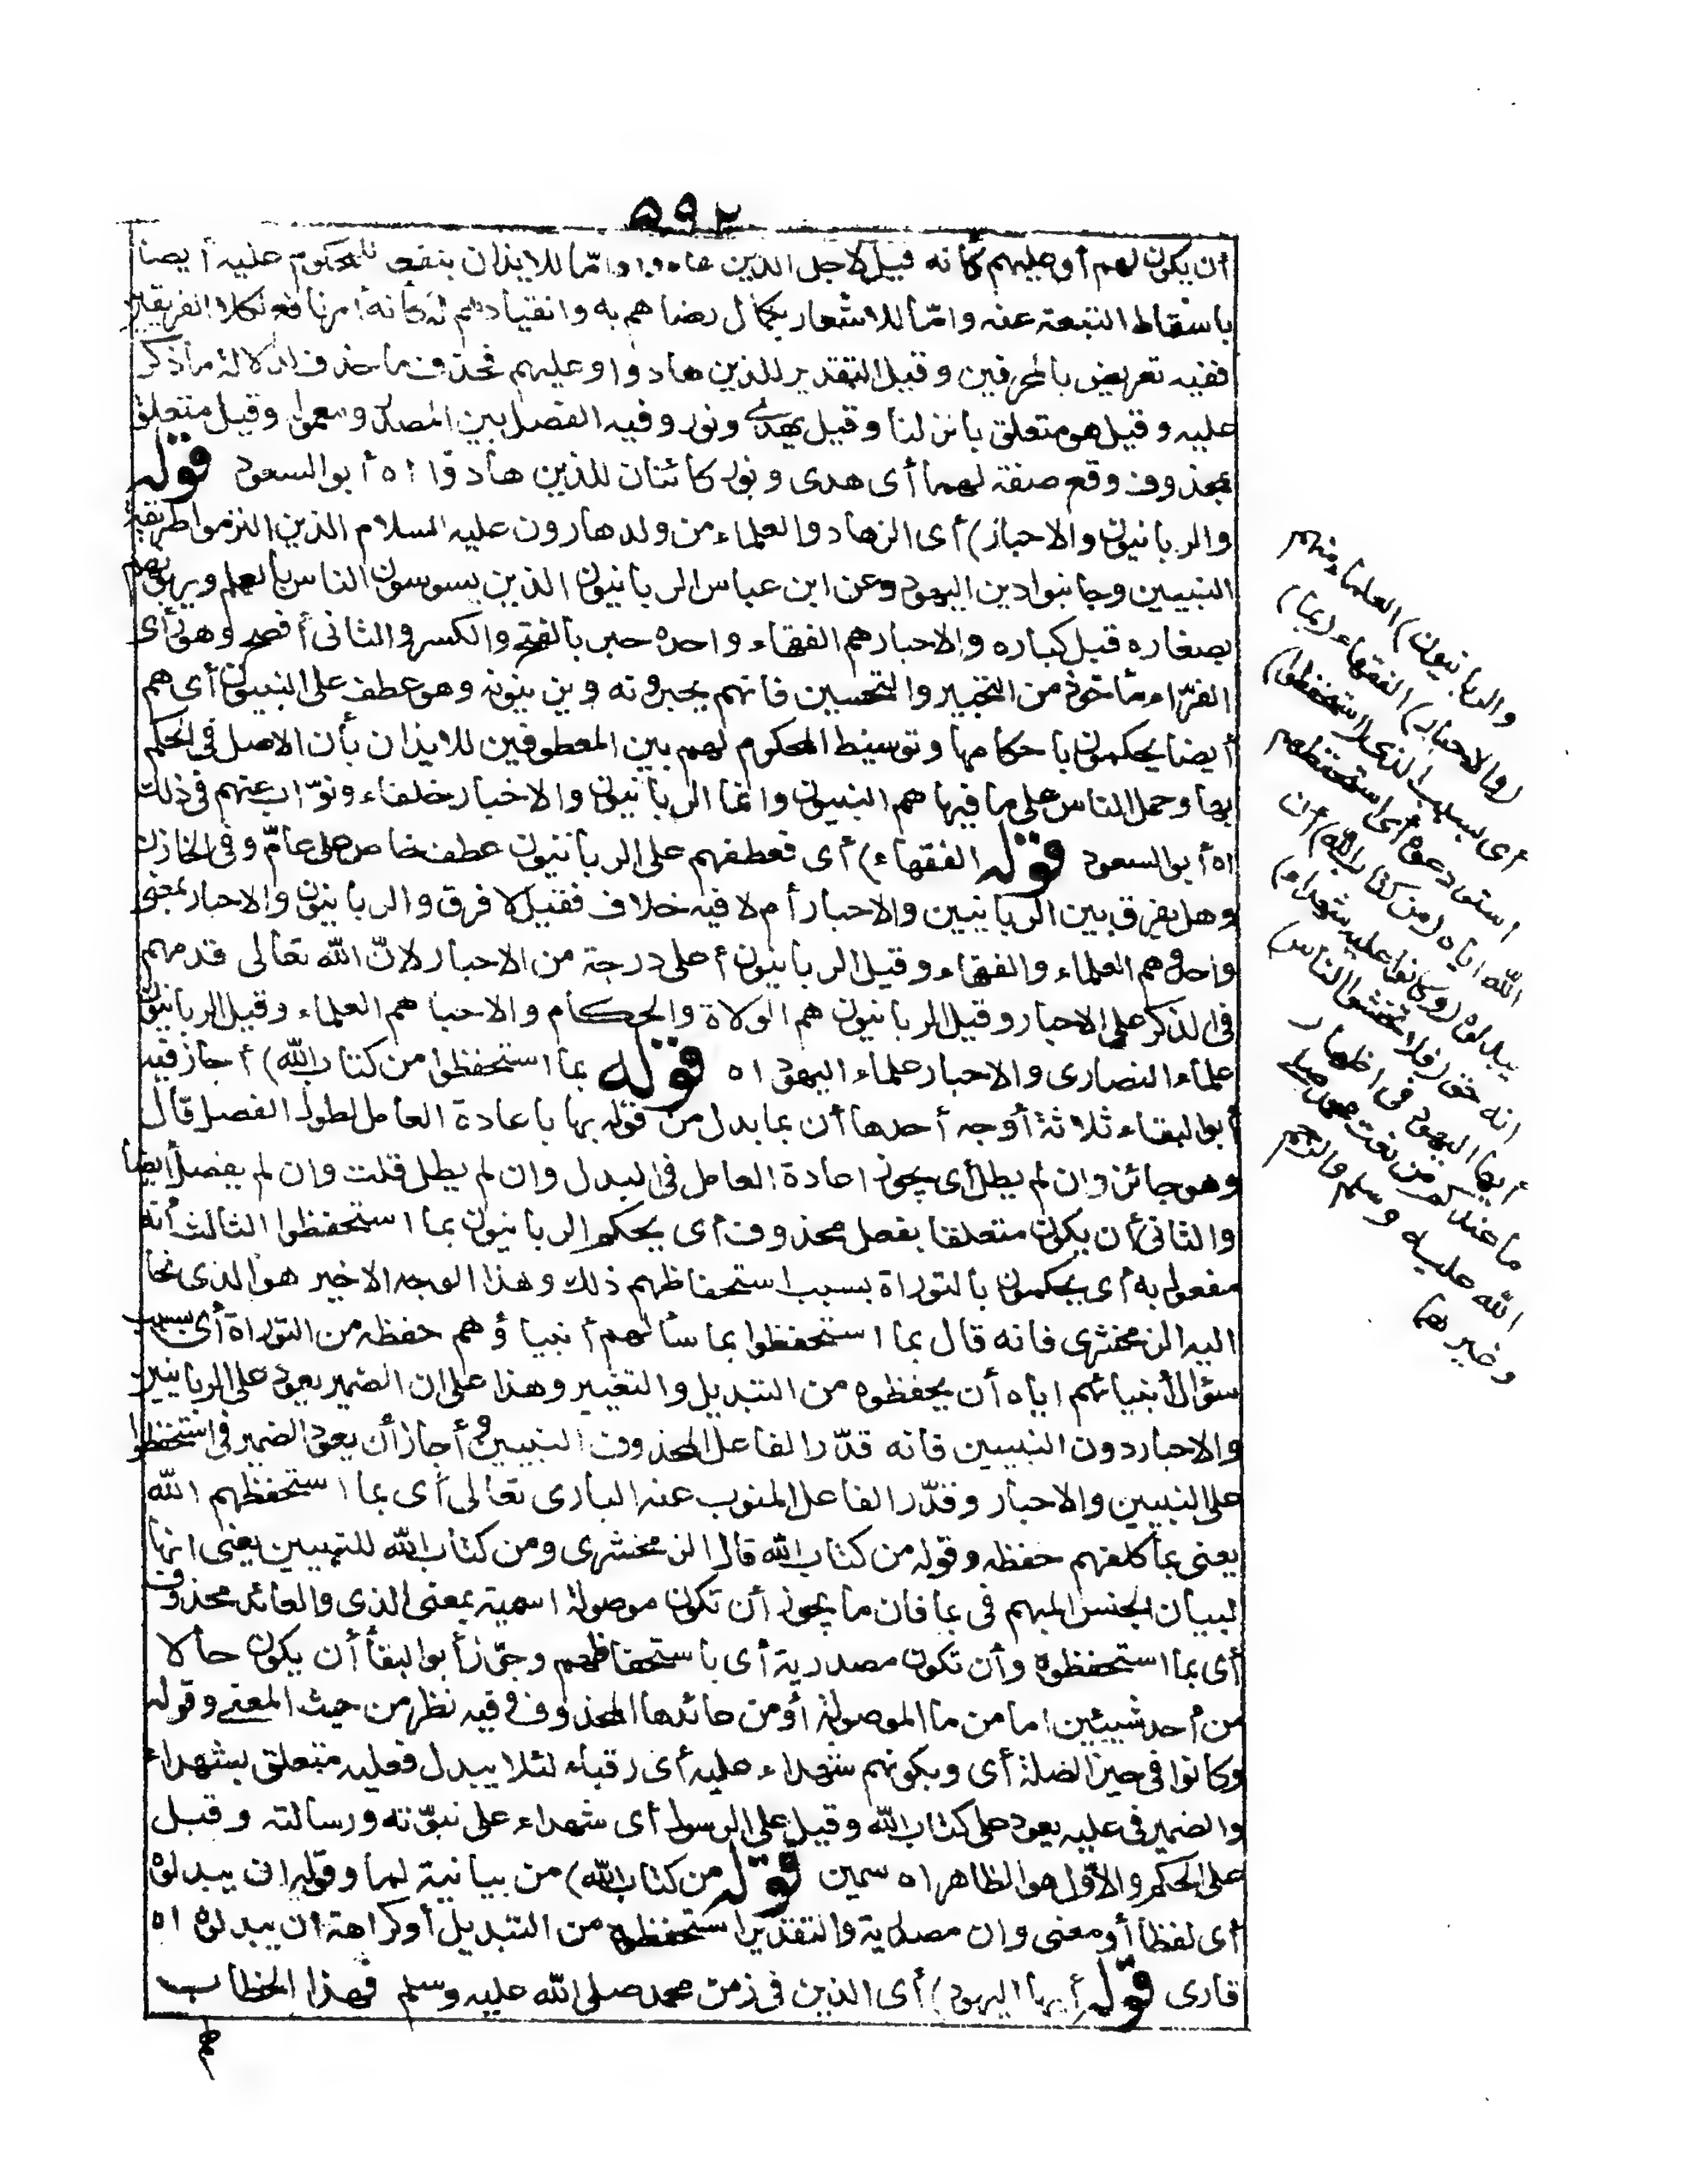 ٥٩٢
أن يكون لهم أو عليهم كأنه قيل لاجل الذين هادوا وامّا للايذان بنفع المحكوم عليه أيضا
باسقاط التبعة عنه وامّا للاشعار بكمال رضاهم به وانقيادهم له كأنه أمر نافع لكلا الفريقين
ففيه تعريض بالمحرفين وقيل التقدير للذين هادوا وعليهم فحذف ما حذف لدلالة ما ذكر
عليه وقيل هو متعلق بانزلنا وقيل بهدى ونور وفيه الفصل بين المصدر ومعموله وقيل متعلق
بمحذوف وقع صفة لهما أى هدى ونور كائنان للذين هادوا اه أبو السعود قوله
والربانيون والاحبار) أى الزهاد والعلماء من ولد هارون عليه السلام الذين التزموا طريقة
النبيين وجانبوا دين اليهود وعن ابن عباس الربانيون الذين يسوسون الناس بالعلم ويربونهم
بصغاره قبل كباره والاحبار هم الفقهاء واحده حبر بالفتح والكسر والثانى أفصح وهو رأى
الفرّاء مأخوذ من التحبير والتحسين فانهم يحبرونه ويزينونه وهو عطف على النبيون أى هم
أيضا يحكمون باحكامها وتوسيط المحكوم لهم بين المعطوفين للايذان بأن الاصل فى الحكم
بها وحمل الناس على ما فيها هم النبيون وانما الربانيون والاحبار خلفاء ونوّاب عنهم فى ذلك
اه أبو السعود قوله الفقهاء) أى فعطفهم على الربانيون عطف خاص على عامّ وفى الخازن
وهل يفرق بين الربانيين والاحبار أم لا فيه خلاف فقيل لا فرق والربانيون والاحبار بمعنى
واحد وهم العلماء والفقهاء وقيل الربانيون أعلى درجة من الاحبار لانّ الله تعالى قدمهم
فى الذكر على الاحبار وقيل الربانيون هم الولاة والحكام والاحبا هم العلماء وقيل الربانيون
علماء النصارى والاحبار علماء اليهود اه قوله بما استحفظوا من كتاب الله) أجاز فيه
أبو البقاء ثلاثة أوجه أحدها أن بما بدل من قوله بها باعادة العامل لطول الفصل قال
وهو جائز وان لم يطل أى يجوز اعادة العامل فى البدل وان لم يطل قلت وان لم يفصل أيضا
والثانى أن يكون متعلقا بفعل محذوف أى يحكم الربانيون بما استحفظوا الثالث أنه
مفعول به أى يحكمون بالتوراة بسبب استحفاظهم ذلك وهذا الوجه الاخير هو الذى نحا
اليه الزمخشرى فانه قال بما استحفظوا بما سألهم أنبياؤهم حفظه من التوراة أى بسبب
سؤال أنبيائهم اياه أن يحفظوه من التبديل والتغيير وهذا على ان الضمير يعود على الربانيين
والاحبار دون النبيين فانه قدّر الفاعل المحذوف النبيين وأجاز أن يعود الضمير فى استحفظوا
على النبيين والاحبار وقدّر الفاعل المنوب عنه البارى تعالى أى بما استحفظهم الله
يعنى بما كلفهم حفظه وقوله من كتاب الله قال الزمخشرى ومن كتاب الله للتبيين يعنى انها
لبيان الجنس المبهم فى بما فان ما يجوز أن تكون موصولة اسمية بمعنى الذى والعائد محذوف
أى بما استحفظوه وأن تكون مصدرية أى باستحفاظهم وجوّز أبو البقا أن يكون حالا
من أحد شيئين اما من ما الموصولة أو من عائدها المحذوف وفيه نظر من حيث المعنى وقوله
وكانوا فى حيز الصلة أى وبكونهم شهداء عليه أى رقباء لئلا يبدل فعليه متعلق بشهداء
والضمير فى عليه يعود على كتاب الله وقيل على الرسول أى شهداء على نبوّته ورسالته وقيل
على الحكم والاوّل هو الظاهر اه سمين قوله من كتاب الله) من بيانية لما وقوله ان يبدلوه
أى لفظا أو معنى وان مصدرية والتقدير استحفظوه من التبديل أو كراهة ان يبدلوه اه
قارى قوله أيها اليهود) أى الذين فى زمن محمد صلى الله عليه وسلم فهذا الخطاب
لهم
والربانيون) العلماء منهم
(والاحبار) الفقهاء (بما)
أى بسبب الذى (استحفظوا)
استودعوه أى استحفظهم
الله اياه (من كتاب الله) أن
يبدلوه (وكانوا عليه شهداء)
انه حق (فلا تخشوا الناس)
أيها اليهود فى اظهار
ما عندكم من نعت محمد صلى
الله عليه وسلم والرجم
وغيرها